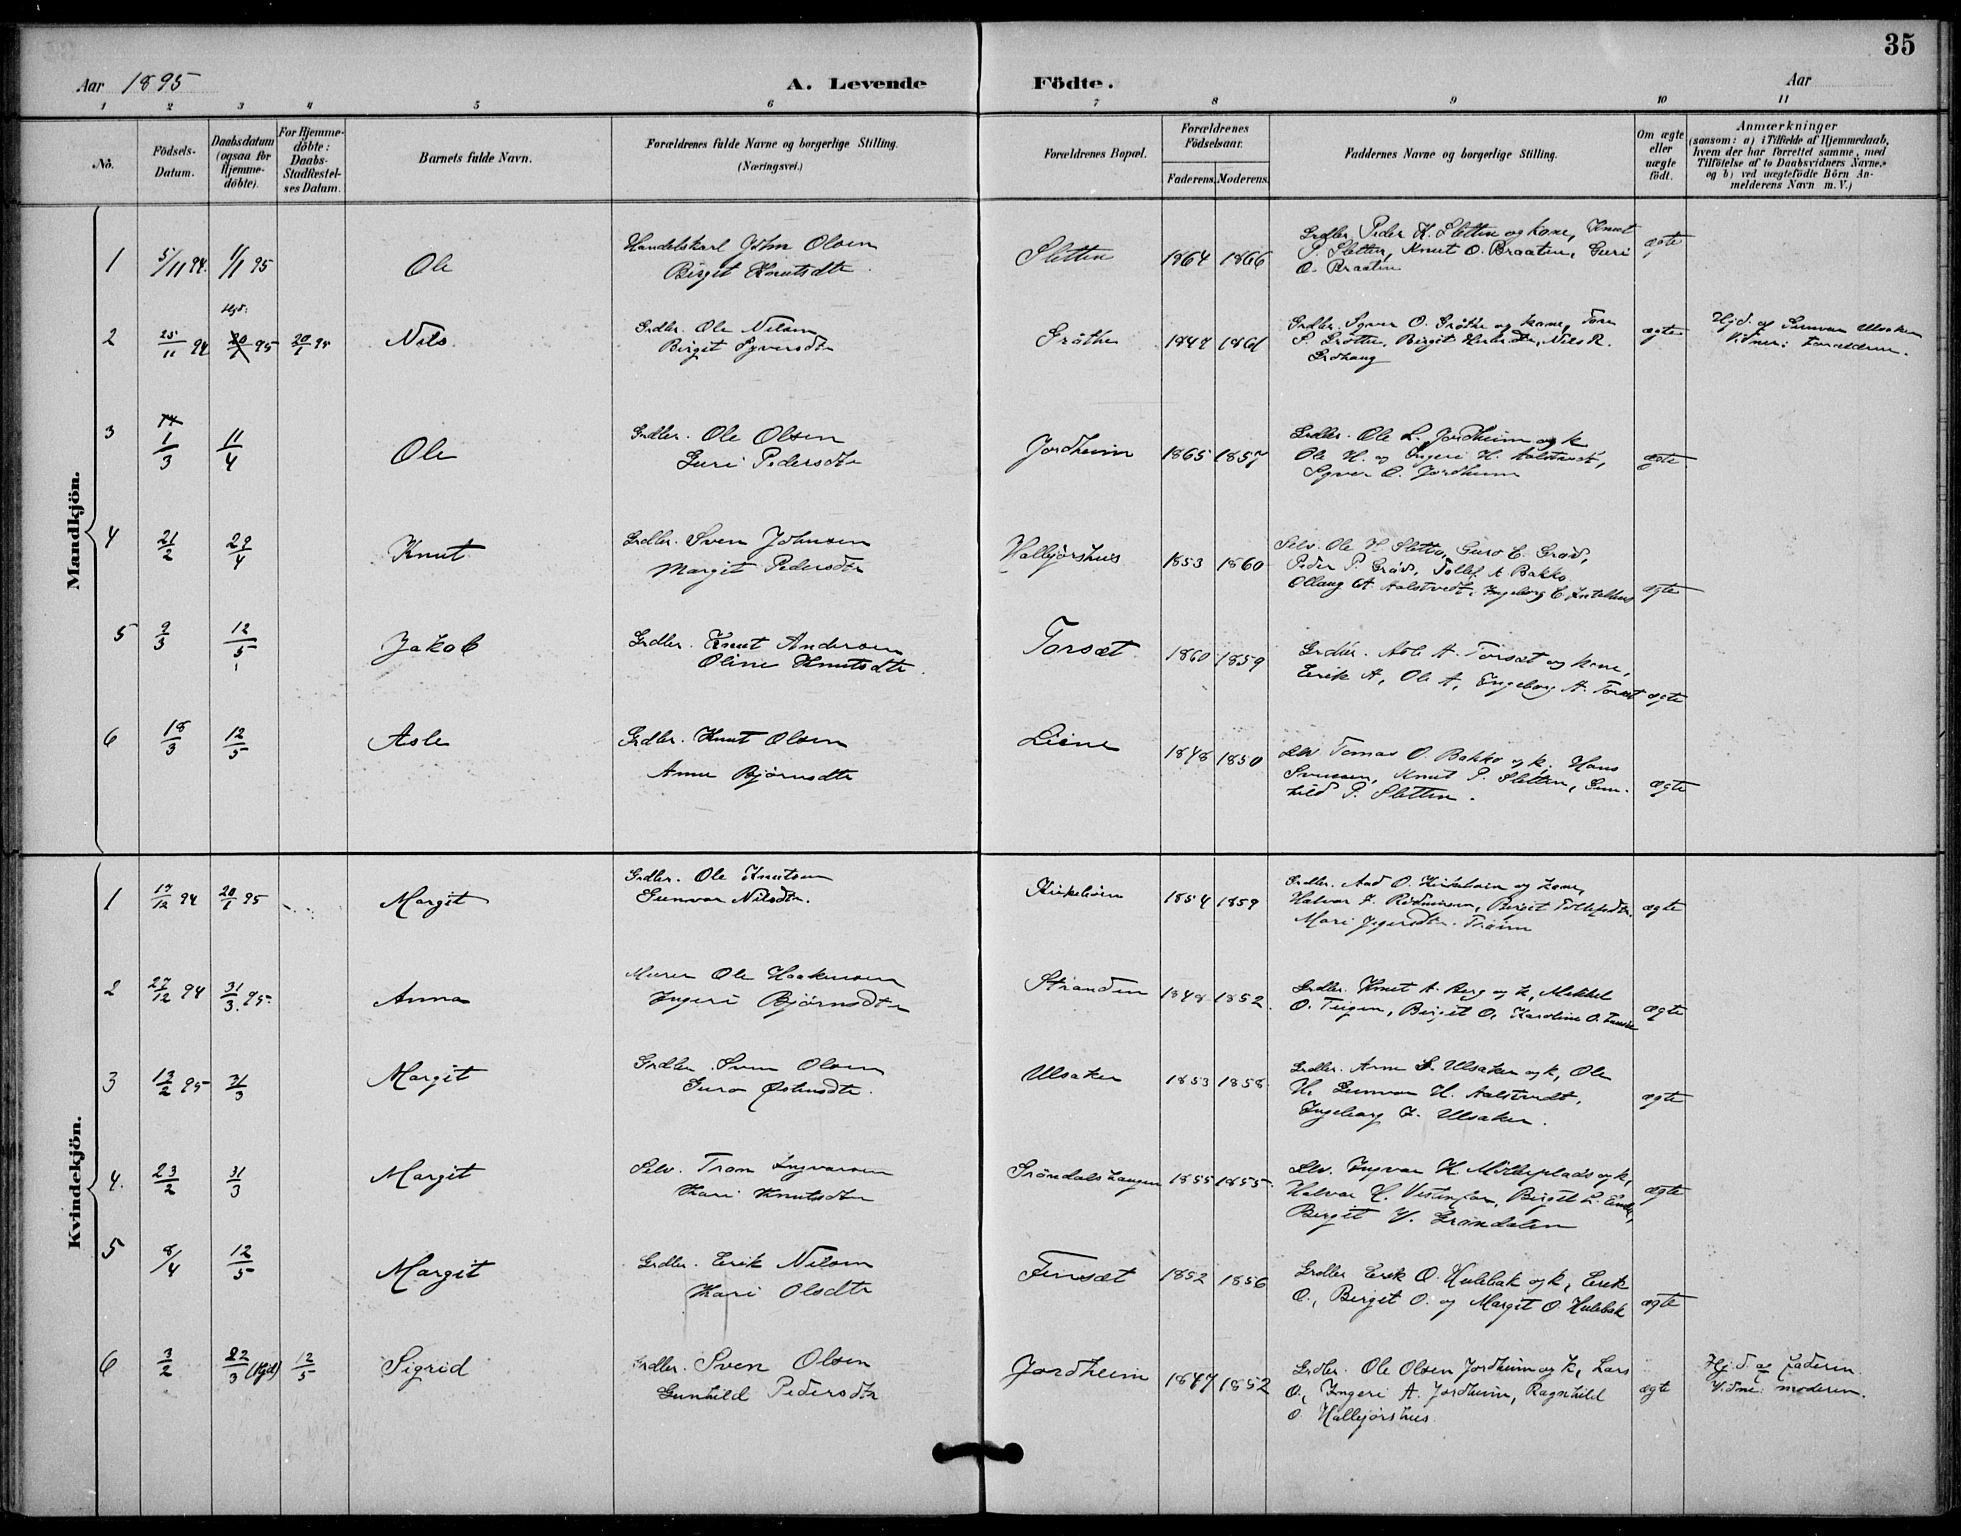 35
Aar 1895
A. Levende Födte.
Aar
1 2 3 4 5 6 7 8 9 10 11
No.
Födsels-Datum.
Daabsdatum (ogsaa for Hjemme-döbte).
For Hjemme-döbte: Daabs-Stadfestel-ses Datum.
Barnets fulde Navn.
Forældrenes fulde Navne og borgerlige Stilling.
(Næringsvei.)
Forældrenes Bopæl.
Forældrenes Födselsaar.
Faderens. Moderens.
Faddernes Navne og borgerlige Stilling.
Om ægte eller uægte födt.
Anmærkninger
(saasom: a) i Tilfælde af Hjemmedaab,
hvem der har forrettet samme, med
Tilföielse af to Daabsvidners Navne,
og b) ved uægtefödte Börn An-
melderens Navn m. V.)
Mandkjön.
1 5/11 94. 1/1 95 Ole
Handelskarl John Olsen
Birgit Knutsdtr.
Sletten 1864 1866
Grdbr. Peder K. Sletten og kone, Knut
P. Sletten, Knut O. Braaten, Guri
O. Braaten
ægte
2 25/11 94 Hjd. 20/1 95 20/1 95 Nils
Grdbr. Ole Nilsen
Birgit Syversdtr
Grøthe 1847 1861
Grdbr. Syver O. Grøthe og kone, Tore
S. Grøthe, Birgit Nils R.
ægte
Hjd. af Gunvor Ulsaker
Vidner: Forældrene.
3 1/3 11/4 Ole
Grdbr. Ole Olsen
Guri Pedersdtr
Jordheim 1865 1857
Grdbr. Ole L. Jordheim og k
Ole H. og Ingeri H. Aalstvedt,
Syver O. Jordheim
ægte
4 21/2 29/4 Knut
Grdbr. Sven Johnsen
Margit Pedersdtr
Halbjørshus 1853 1860
Selv. Ole H. Sletto, Guro E. Grøv,
Peder P. Grøv, Tollef A Bakko
Ollaug A. Aalstvedt, Ingeborg E.
ægte
5 9/3 12/5 Jakob
Grdbr. Knut Andersen
Oline Knutsdtr.
Torset 1860 1859
Grdbr. Asle A. Torset og kone,
Erik A, Ole A, Ingeborg A. Torset
ægte
6 18/3 12/5 Asle
Grdbr. Knut Olsen
Anne Bjørnsdtr
Liene 1848 1850
Selv Tomas O. Bakko og k. Hans
Svensen, Knut P. Sletten, Gun-
hild P. Sletten.
ægte
Kvindekjön.
1 17/12 94 20/1 95 Margit
Grdbr. Ole Knutsen
Gunvor Nilsdtr.
Kirkebøen 1854 1859
Grdbr. Aad O. Kirkebøen og kone,
Halvor Birgit Tollefsdtr.
Mari Trøim
ægte
2 27/12 94 31/3 95. Anna
Murer Ole Haakensen
Ingeri Bjørnsdtr
Stranden 1848 1852.
Grdbr. Knut A. Berg og k, Mekkel
O. Teigen, Birgit O, Karoline O.
ægte
3 13/2 95 31/3 Margit
Grdbr. Sven Olsen
Guro Østensdtr.
Ulsaker 1853 1858
Grdbr. Arne S. Ulsaker og k, Ole
H, Gunvor H. Aalstvedt,
Ingeborg Ulsaker.
ægte
4. 23/2 31/3 Margit
Selv. Trom Ingvarsen
Kari Knutsdtr
Grøndalshaugen 1855 1855.
Selv. Ingvar H. Mølleplads og k,
Halvor H. Birgit L.
Birgit V. Grøndalen
ægte
5 8/4 12/5 Margit
Grdbr. Erik Nilsen
Kari Olsdtr
Finset 1852 1856
Grdbr Erik O. Hulebak og k, Erik
O., Birgit O. og Margit O Hulebak
ægte
6 3/2 22/3 (Hjd) 12/5 Sigrid
Grdbr. Sven Olsen
Gunhild Pedersdtr
Jordheim 1847 1852
Grdbr. Ole Olsen Jordheim og k, Lars
O, Ingeri A. Jordheim, Ragnhild
O. Halbjørshus.
ægte
Hj.d. af faderen
Vidne: moderen.